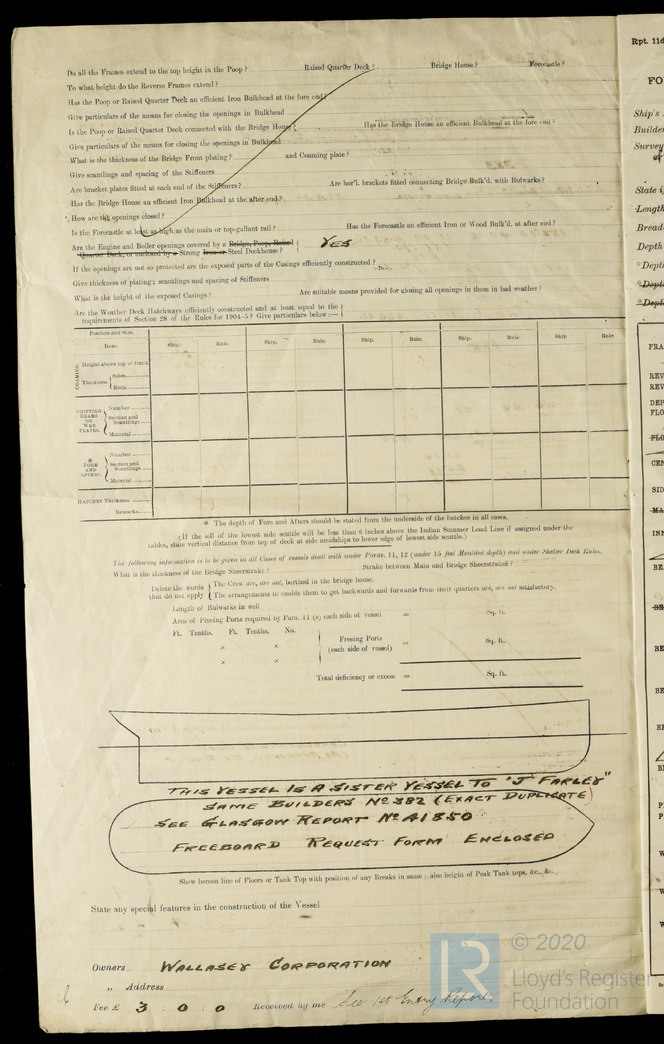 Do all the Frames extend to the top height in the Poop? Raised Quarter Deck? Bridge House? Forecastle?
To what height do the Reverse Frames extend?
Has the Poop or Raised Quarter Deck an efficient Iron Bulkhead at the fore end?
Give particulars of the means for closing the openings in Bulkhead
Is the Poop or Raised Quarter Deck connected with the Bridge House? Has the Bridge House an efficient Bulkhead at the fore end?
Give particulars of the means for closing the openings in Bulkhead
What is the thickness of the Bridge Front plating? and Coaming plate?
Give scantlings and spacing of the Stiffeners
Are bracket plates fitted at each end of the Stiffeners? Are hor'l. brackets fitted connecting Bridge Bulk'd. with Bulwarks?
Has the Bridge House an efficient Iron Bulkhead at the after end?
How are the openings closed?
Is the Forecastle at least as high as the main or top-gallant rail? Has the Forecastle an efficient Iron or Wood Bulk'd. at after end?
Are the Engine and Boiler openings covered by a Bridge, Poop, Raised
Quarter Deck, or enclosed by a Strong Iron or Steel Deckhouse? YES
If the openings are not so protected are the exposed parts of the Casings efficiently constructed?
Give thickness of plating; scantlings and spacing of Stiffeners
What is the height of the exposed Casings? Are suitable means provided for closing all openings in them in bad weather?
Are the Weather Deck Hatchways efficiently constructed and at least equal to the
requirements of Section 28 of the Rules for 1904-5? Give particulars below:—
Position and Size.
Item. Ship. Rule. Ship. Rule. Ship. Rule. Ship. Rule. Ship Rule.
COAMING Height above top of DECK
Thickness Sides
Ends
SHIFTING BEAMS OR WEB PLATES. Number
Section and Scantlings
Material
* FORE AND AFTERS. Number
Section and Scantlings
Material
HATCHES Thickness
Remarks
* The depth of Fore and Afters should be stated from the underside of the hatches in all cases.
(If the sill of the lowest side scuttle will be less than 6 inches above the Indian Summer Load Line if assigned under the
tables, state vertical distance from top of deck at side amidships to lower edge of lowest side scuttle.)
The following information is to be given in all Cases of vessels dealt with under Paras. 11, 12 (under 15 feet Moulded depth) and under Shelter Deck Rules.
What is the thickness of the Bridge Sheerstrake? Strake between Main and Bridge Sheerstrakes?
Delete the words The Crew are, are not, berthed in the bridge house.
that do not apply The arrangements to enable them to get backwards and forwards from their quarters are, are not satisfactory.
Length of Bulwarks in well
Area of Freeing Ports required by Para. 11 (e) each side of vessel = Sq. ft.
Ft. Tenths. Ft. Tenths. No.
× × Freeing Ports = Sq. ft.
(each side of vessel)
× ×
Total deficiency or excess = Sq. ft.
THIS VESSEL IS A SISTER VESSEL TO "J FARLEY"
SAME BUILDERS No 382 (EXACT DUPLICATE)
SEE GLASGOW REPORT No 41850
FREEBOARD REQUEST FORM ENCLOSED
Show hereon line of Floors or Tank Top with position of any Breaks in same; also height of Peak Tank tops, &c., &c.,
State any special features in the construction of the Vessel
Owners WALLASEY CORPORATION
" Address
Fee £ 3 0 0 Received by me See 1st Entry Report.
© 2020
Lloyd's Register
Foundation
Rpt. 11d
FO
Ship's
Builder
Survey
of
State i
Length
Bread
Depth
FRA
REV
REV
DEP
FLO
CEN
SID
INN
BE